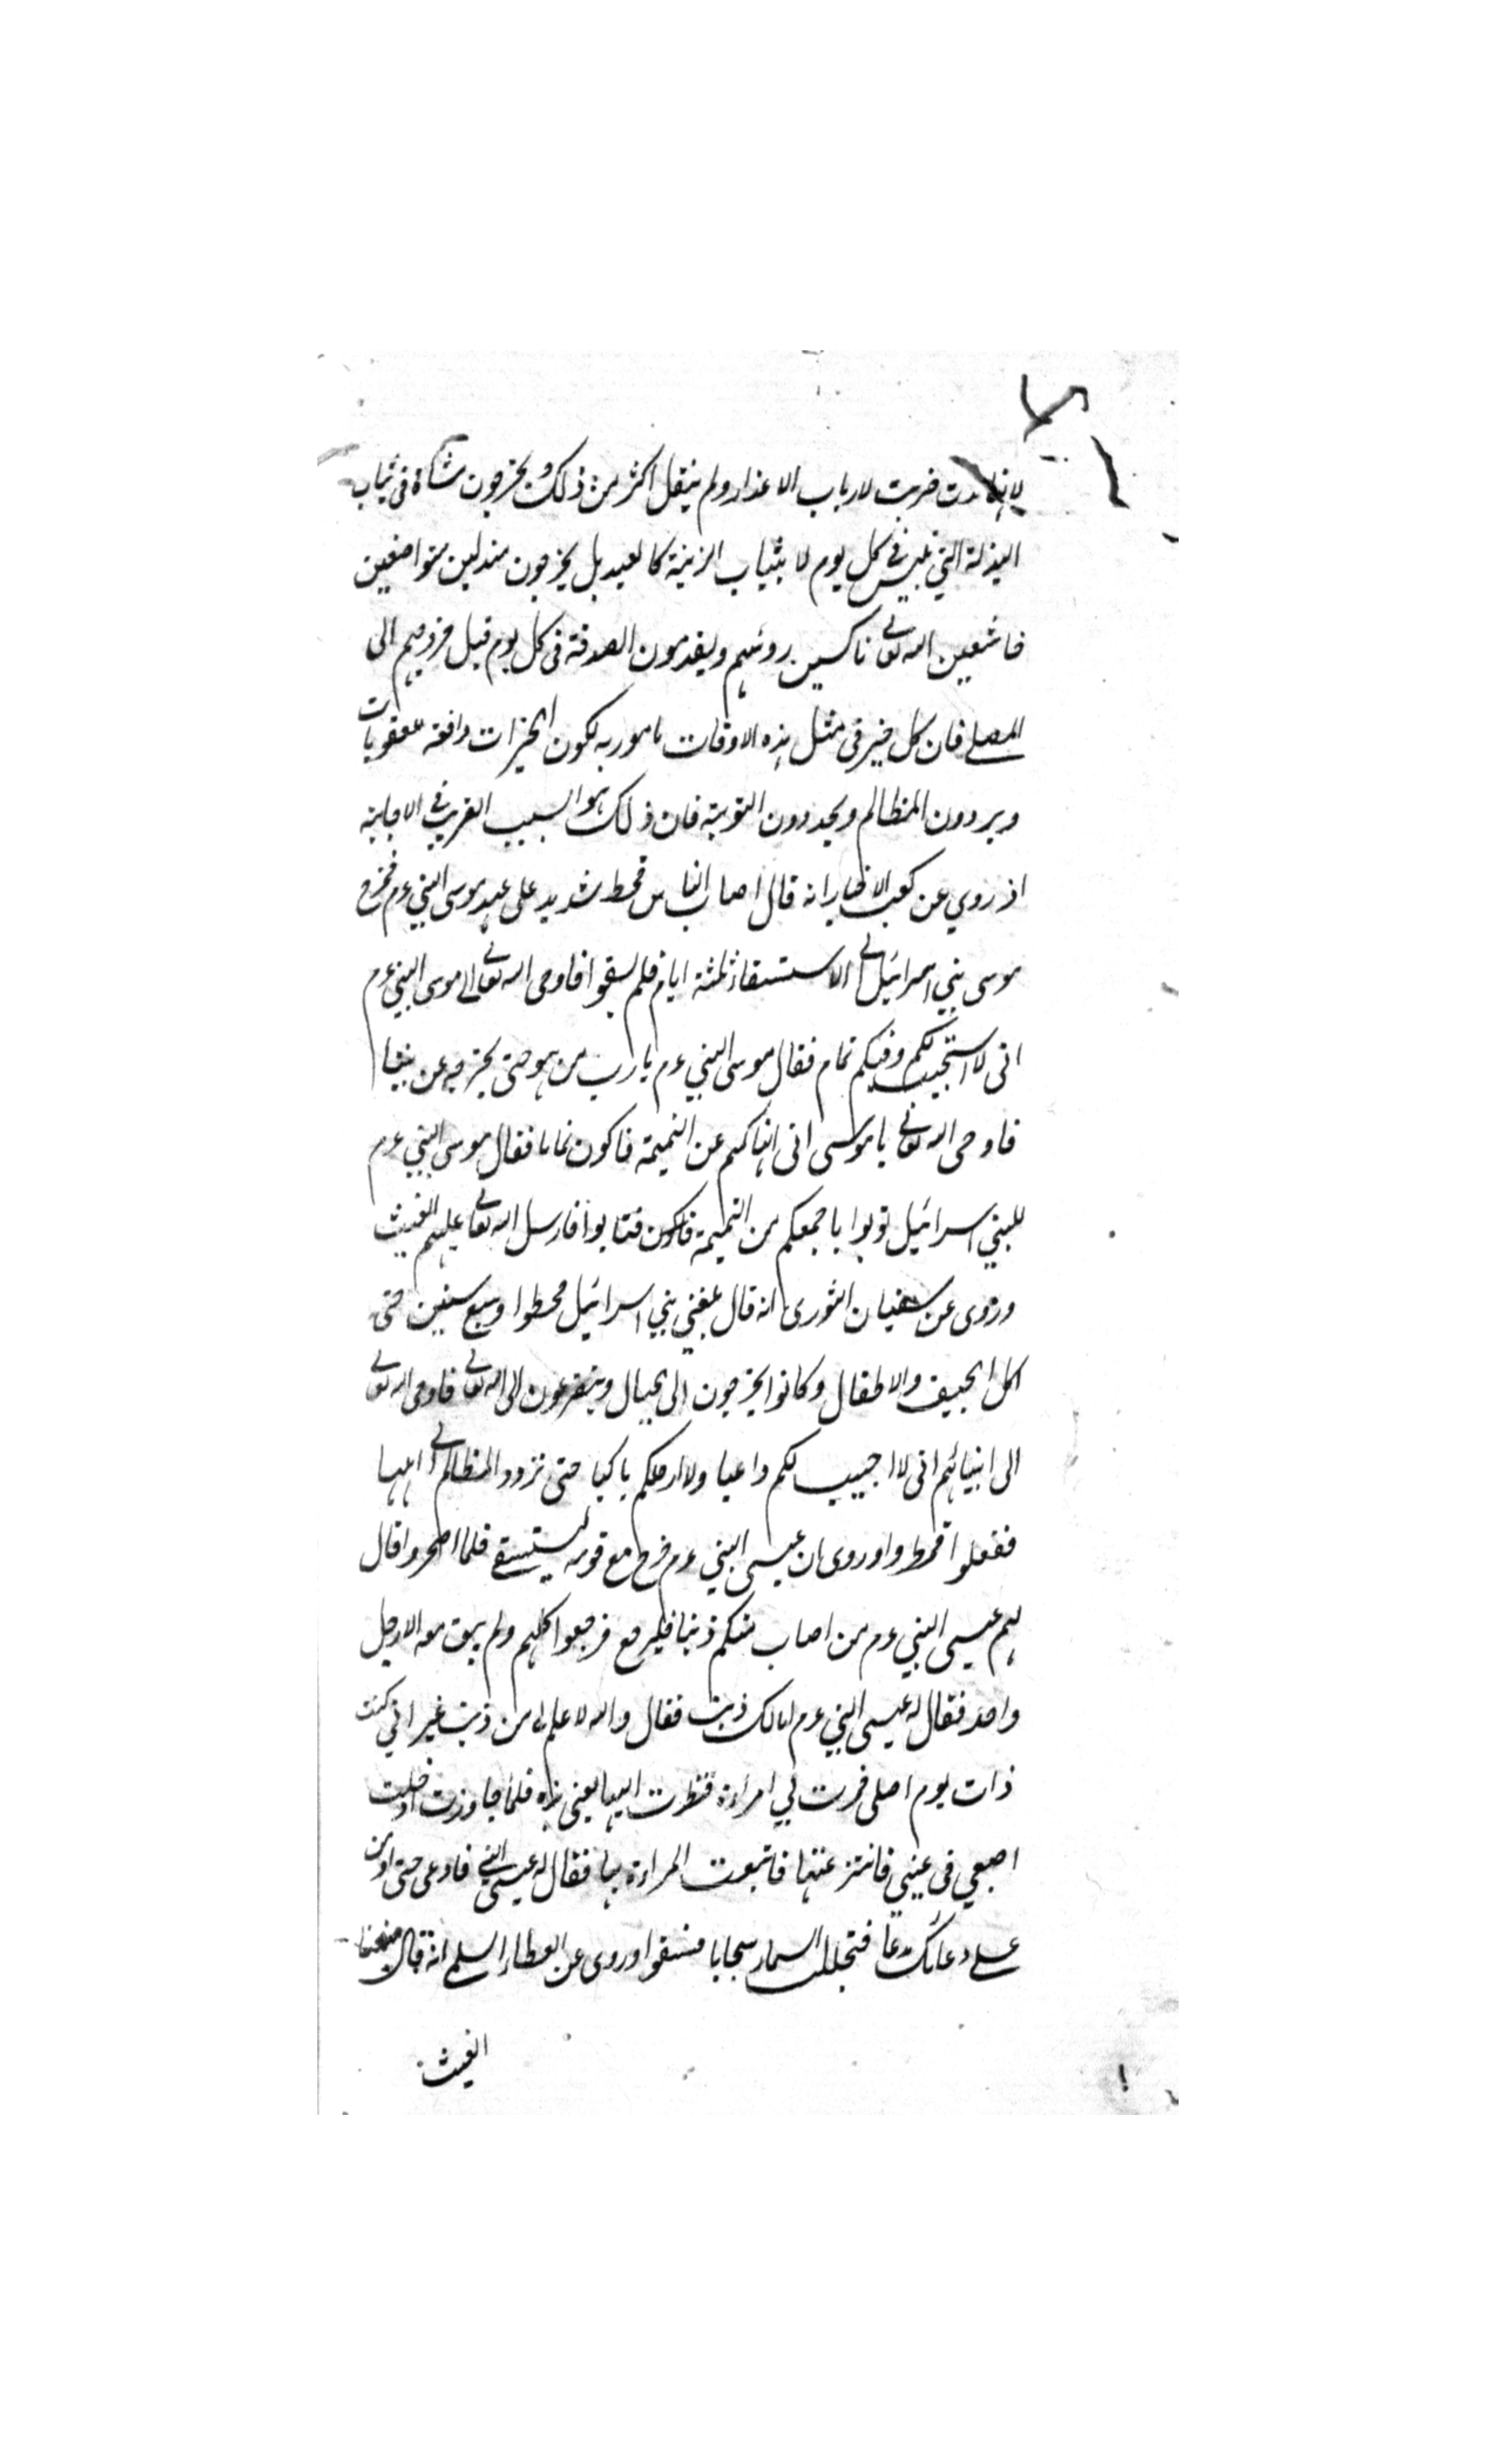 لانها مدت ضربت لارباب الاعذار ولم ينقل اكثر من ذلك ويخرجون مشاة فى ثياب
البذلة التي تلبس في كل يوم لا بثياب الزينة كالعيد بل يخرجون متذللين متواضعين
خاشعين الله تعالى ناكسين رؤسهم ويقدمون الصدقة فى كل يوم قبل خروجهم الى
المصلى فان كل خير فى مثل هذه الاوقات مامور به لكون الخيرات دافعة للعقوبات
ويردون المظالم ويجددون التوبة فان ذلك هو السبب القريب في الاجابة
اذ روي عن كعب الاخبار انه قال اصاب الناس قحط شديد على عهد موسى النبي عم فخرج
موسى ببني اسرائيل الى الاستسقاء ثلثة ايام فلم يسقوا فاوحى الله تعالى الى موسى النبي عم
انى لا استجيب لكم وفيكم نمام فقال موسى النبي عم يا رب من هو حتى يخرجه عن بيننا
فاوحى الله تعالى يا موسى انى انهاكم عن النميمة فاكون نماما فقال موسى النبي عم
لبني اسرائيل توبوا باجمعكم من النميمة فتابوا فارسل الله تعالى عليهم الغيث
وروى عن سفيان الثورى انه قال بلغني بني اسرائيل قحطوا وسبع سنين حتى
اكل الجيف والاطفال وكانوا يخرجون الى الجبال ويتضرعون الى الله تعالى فاوحى الله تعالى
الى انبيائهم انى لا اجيب لكم داعيا ولا ارحلكم باكيا حتى تردد المظالم الى اهلها
ففعلوا فمطروا وروى ان عيسى النبي عم خرج مع قومه ليستسقى فلما اصحروا قال
لهم عيسى النبي عم من اصاب منكم ذنبا فليرجع فرجعوا كلهم ولم يبق معه الا رجل
واحد فقال له عيسى النبي عم اما لك ذنب فقال والله لا علم لى من ذنب غير اني كنت
ذات يوم اصلى فمرت بي امراءة فنظرت اليها بعينى هذه فلما جاوزت ادخلت
اصبعي فى عيني فانتزعتها فاتبعت المراءة بها فقال له عيسى النبي فادعى حتى اومن
على دعائك فدعا فتجللت السماء سحابا فسقوا وروى عن العطاء السلمى انه قال منعنا
الغيث